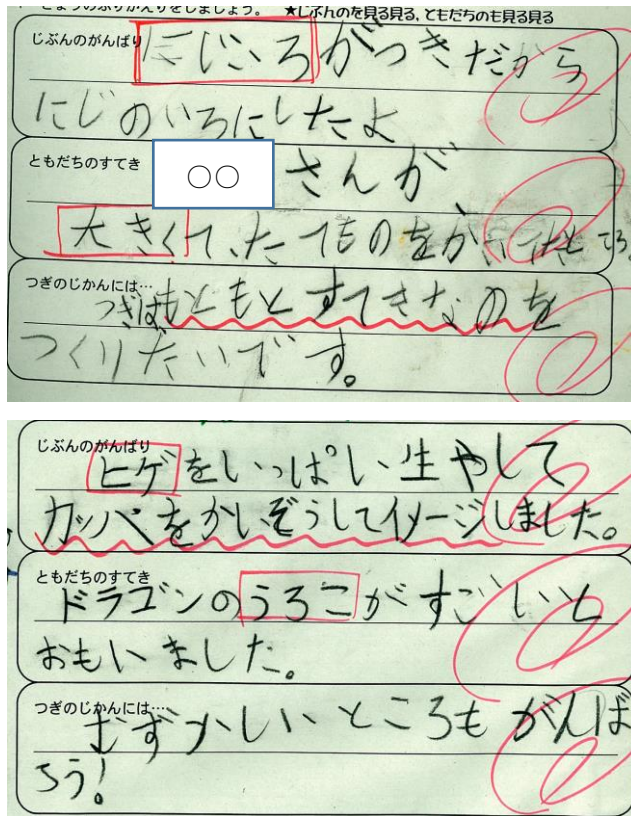 きょうのふりかえりをしましょう。 ★じぶんのを見る見る、ともだちのも見る見る
じぶんのがんばり
にじいろがつきだから
にじのいろにしたよ
ともだちのすてき
○○さんが、
大きくて、たてものをかいたところ
つぎのじかんには…
つぎはもともとすてきなのを
つくりたいです。
じぶんのがんばり
ヒゲをいっぱい生やして
カッパをかいぞうしてイメージしました。
ともだちのすてき
ドラゴンのうろこがすごいと
おもいました。
つぎのじかんには…
むずかしいところもがんば
ろう!